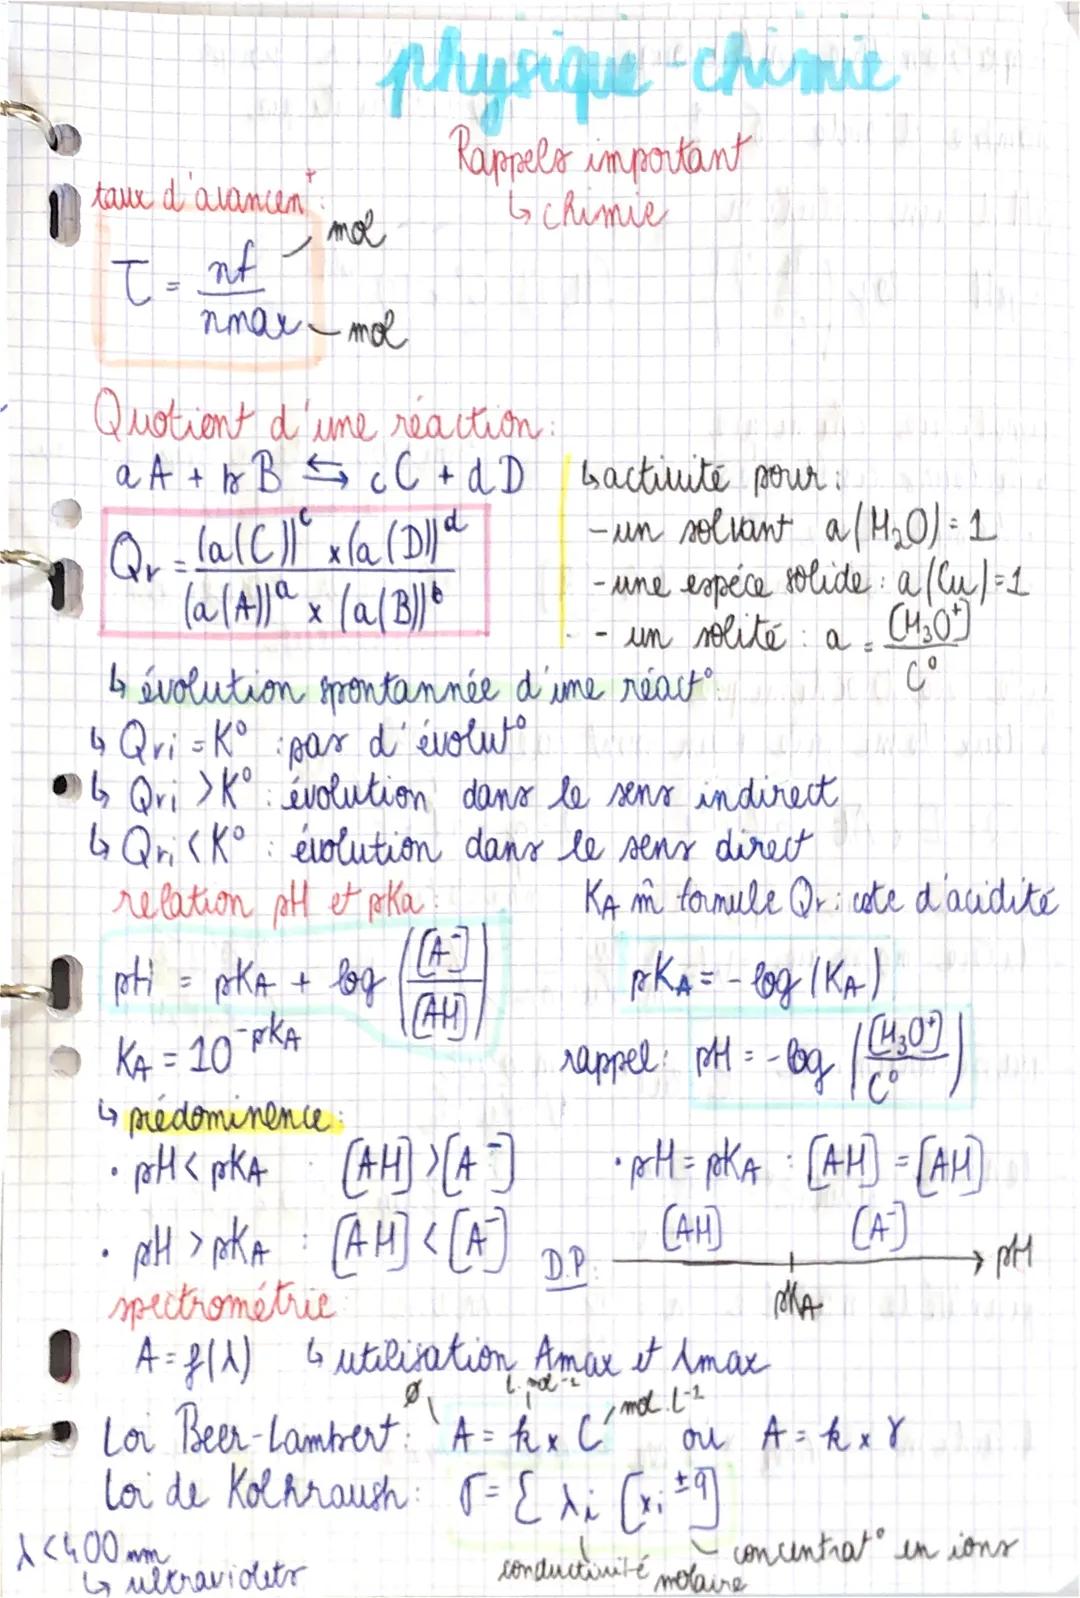 physique-chimie
Rappels important
↳ chimie
taux d'avancem^t :
τ = nf / nmax
mol
mol
Quotient d'une réaction :
aA + bB ⇆ cC + dD
Qr = (a(C))^c x (a(D))^d / (a(A))^a x (a(B))^b
↳ activité pour :
- un solvant a(H₂O) = 1
- une espéce solide : a(Cu) = 1
- un solité : a = [H₃O⁺] / C°
↳ évolution spontannée d'une réact°
↳ Qri = K° : pas d'évolut°
↳ Qri > K° : évolution dans le sens indirect
↳ Qri < K° : évolution dans le sens direct
relation pH et pka :
pH = pKA + log ([A⁻] / [AH])
KA = 10^-pKA
KA m̂ formule Qr : cste d'acidité
pKA = - log (KA)
rappel : pH = - log ([H₃O⁺] / C°)
↳ prédominence :
• pH < pKA : [AH] > [A⁻]
• pH = pKA : [AH] = [AH]
• pH > pKA : [AH] < [A⁻]
D.P. [AH] [A⁻] pH
pKA
spectrométrie
A = f(λ) ↳ utilisation Amax et λmax
Ø L.mol⁻¹ mol.L⁻¹
Loi Beer-Lambert : A = k x C ou A = k x γ
Loi de Kolhraush : σ = Σ λi [xi^±q]
conductivité molaire
concentrat° en ions
λ < 400 nm
↳ ultraviolets